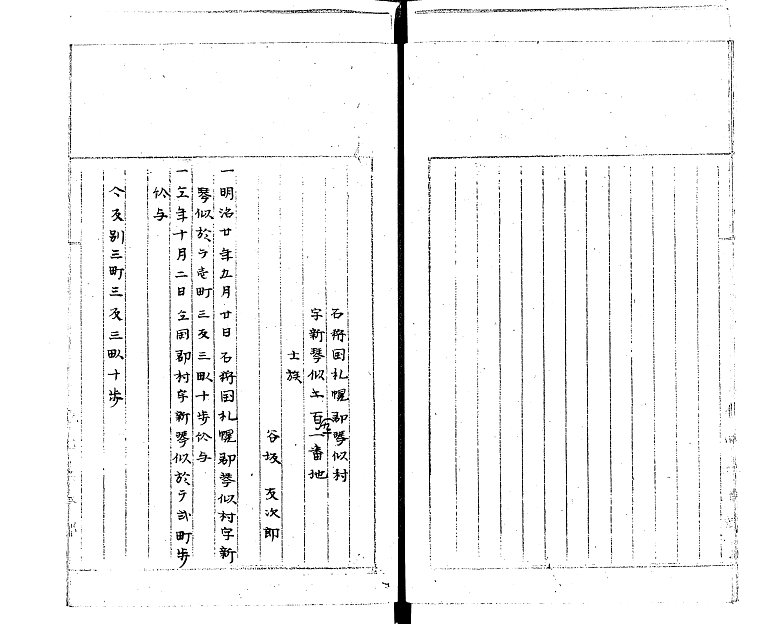 石狩国札幌郡琴似村
字新琴似士百五十一番地
士族
谷坂 友次郎
一明治廿年五月廿日石狩国札幌郡琴似村字新
琴似於テ壱町三反三畝十歩給与
一仝年十月二日仝国郡村字新琴似於テ弐町歩
給与
反別三町三反三畝十歩